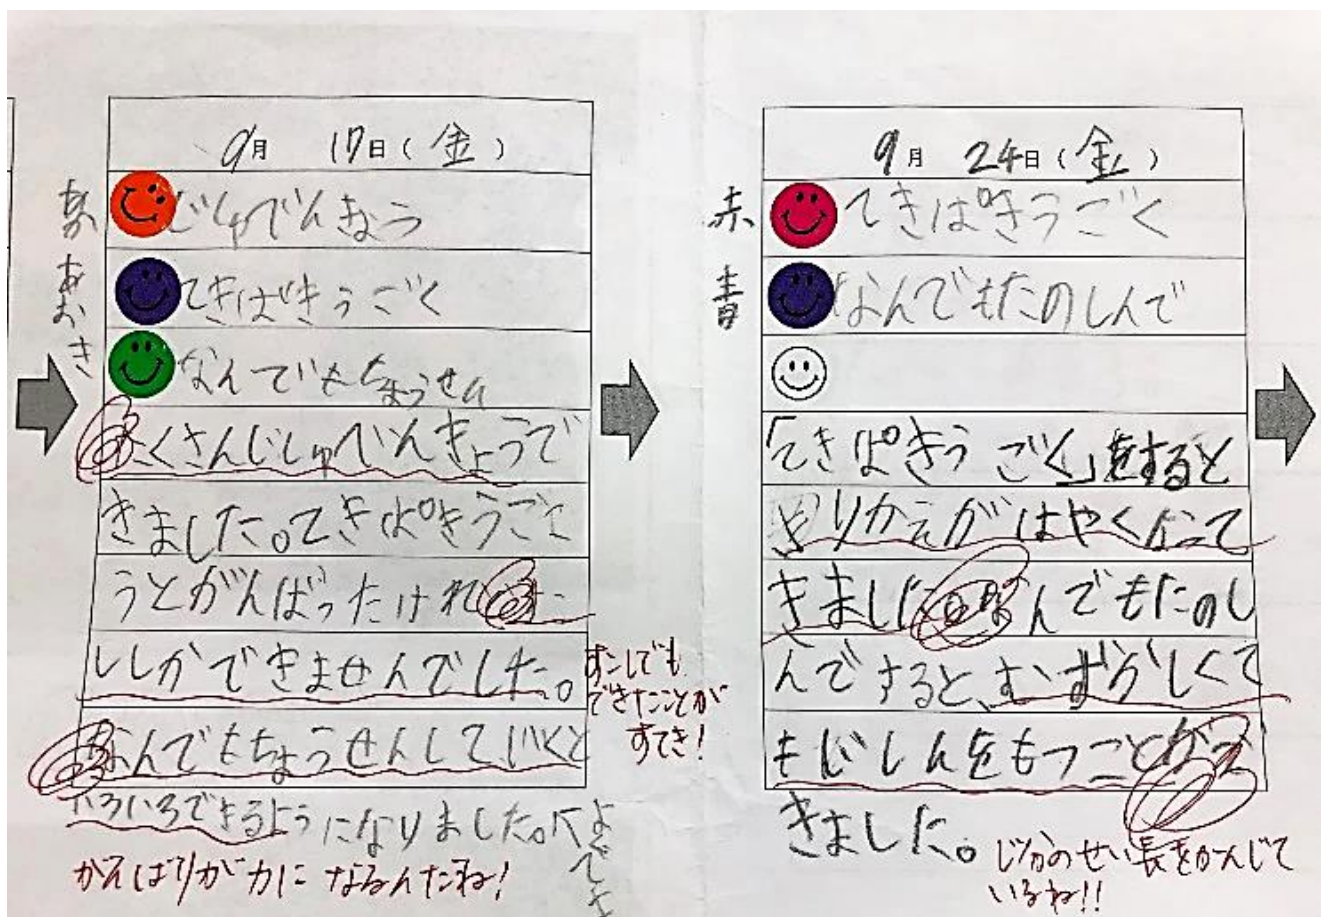 9月 17日(金)
あか
じゅでんきょう
あおき
てきぱきうごく
なんでもちょうせん
たくさんじしゅべんきょうで
きました。てきぱきうごこ
うとがんばったけれ
ししかできませんでした。
なんでもちょうせんしていくと
いろいろできるようになりました。
すこしでも
できたことが
すてき!
がんばりが力になるんだね!
9月 24日(金)
赤
てきぱきうごく
青
なんでもたのしんで
「てきぱきうごく」をすると
きりかえがはやくなって
きました。なんでもたのし
んですると、むずかしくて
もじしんをもつことがで
きました。
じぶんのせい長をかんじて
いるね!!